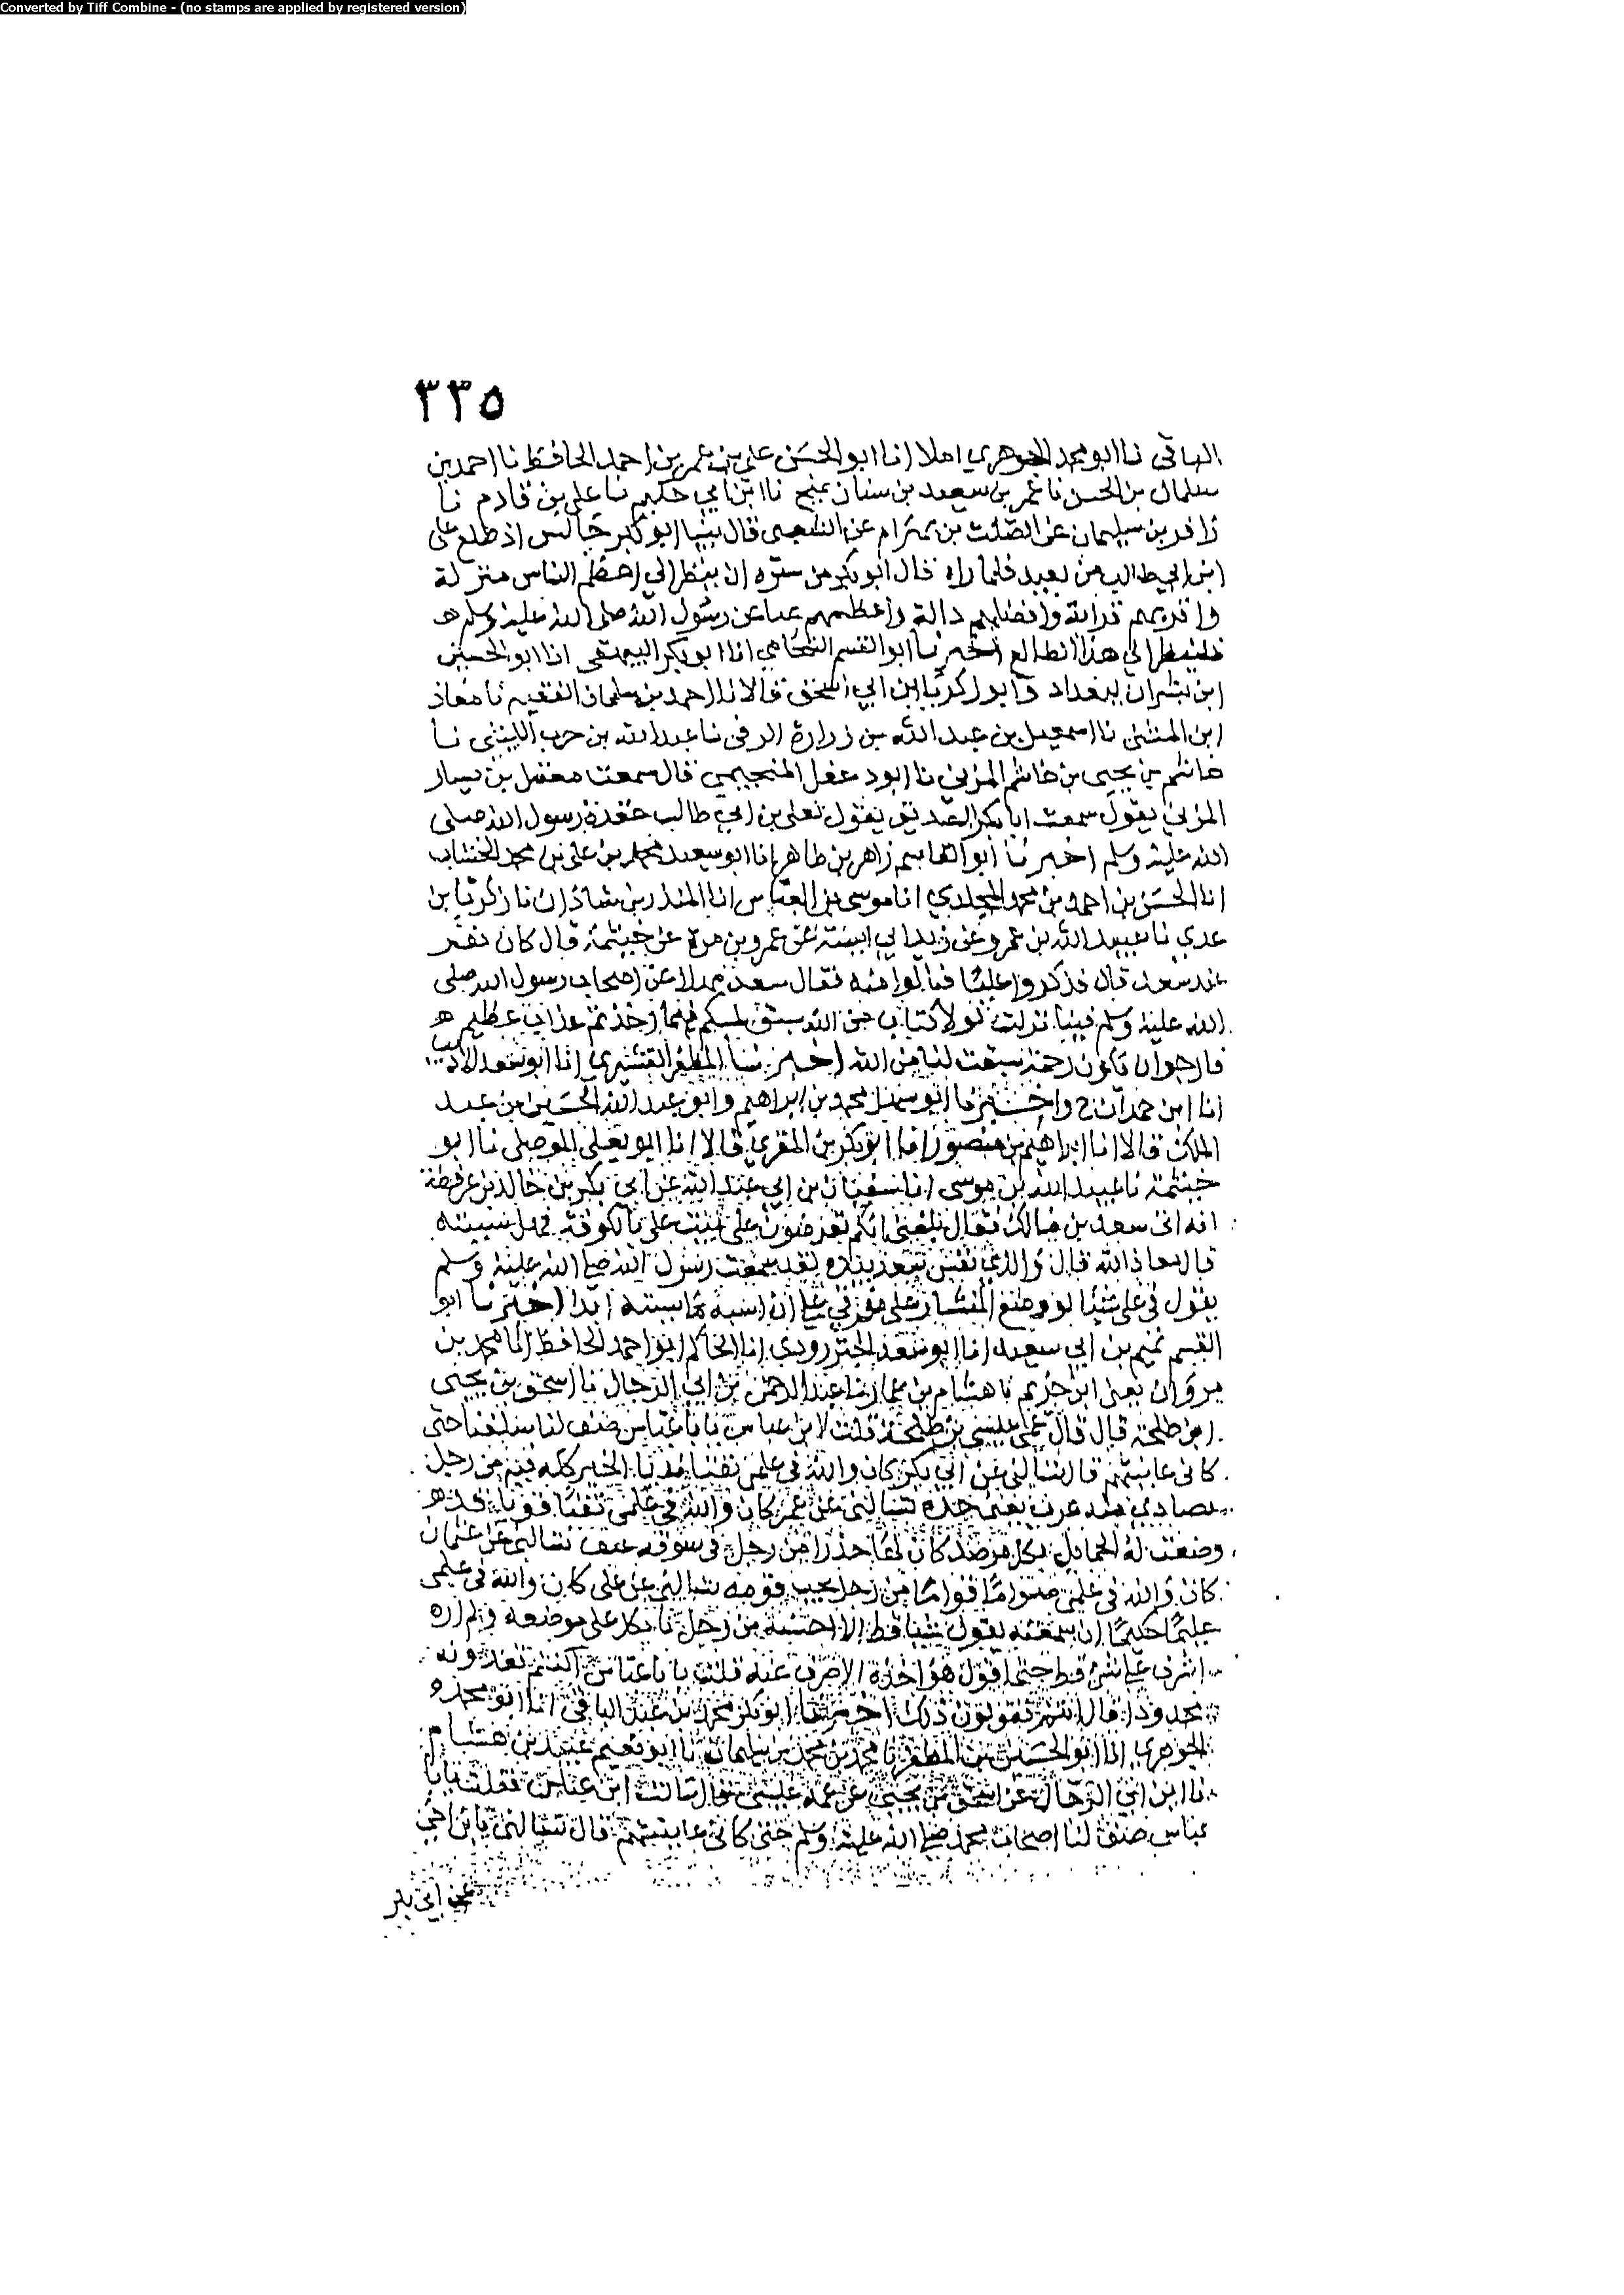 Converted by Tiff Combine - (no stamps are applied by registered version)
٣٣٥
الباقي نا ابو محمد الجوهري املا انا ابو الحسن علي بن عمر بن احمد الحافظ نا احمد بن
سلمان بن الحسن نا عمر بن سعيد بن سنان بمنبج نا ابن ابي حكيم نا علي بن قادم نا
زافر بن سليمان عن الصلت بن بهرام عن الشعبي قال بينا ابو بكر جالس اذ طلع علي
ابن ابي طالب من بعيد فلما راه قال ابو بكر من سره ان ينظر الي اعظم الناس منزلة
واقربهم قرابة وافضلهم دالة واعظمهم عنا عن رسول الله صلى الله عليه وسلم
فلينظر الي هذا الطالع اخبرنا ابو القسم الشحامي انا ابو بكر البيهقي انا ابو الحسين
ابن بشران ببغداد وابو زكريا ابن ابي اسحق قالا نا احمد بن سلمان الفقيه نا معاذ
ابن المثنى نا اسمعيل بن عبد الله بن زرارة الرقي نا عبد الله بن حرب الليثي نا
هاشم بن يحيى بن هاشم المزني نا ابو دغفل الهجيمي قال سمعت معقل بن يسار
المزني يقول سمعت ابا بكر الصديق يقول لعلي بن ابي طالب عقدة رسول الله صلى
الله عليه وسلم اخبرنا ابو القاسم زاهر بن طاهر انا ابو سعيد محمد بن علي بن محمد الخشاب
انا الحسن بن احمد بن محمد المخلدي انا موسى بن العباس انا المنذر بن شاذان نا زكريا بن
عدي نا عبيد الله بن عمرو عن زيد ابي انيسة عن عمرو بن مرة عن خيثمة قال كان نفر
عند سعد قال فذكروا عليا فنالوا منه فقال سعد مهلا عن اصحاب رسول الله صلى
الله عليه وسلم فينا نزلت لولا كتاب من الله سبق لمسكم فيما اخذتم عذاب عظيم
فارجوا ان تكون رحمة سبقت لنا من الله اخبرنا المظفر القشيري انا ابو سعد الاديب
انا ابن حمدان ح واخبرنا ابو سهل محمد بن ابراهيم وابو عبد الله الحسين بن عبد
الملك قالا انا ابراهيم بن منصور انا ابو بكر بن المقري قالا انا ابو يعلى الموصلي نا ابو
خيثمة نا عبيد الله بن موسى انا سفيان بن ابي عبد الله عن ابي بكر بن خالد بن عرفطة
انه اتى سعد بن مالك فقال بلغني انكم تعرضون على سب علي بالكوفة فهل سببته
قال معاذ الله قال والذي نفس سعد بيده لقد سمعت رسول الله صلى الله عليه وسلم
يقول في علي شيئا لو وضع المنشار على مفرقي على ان اسبه ما سببته ابدا اخبرنا ابو
القسم تميم بن ابي سعيد انا ابو سعد الجنزرودي انا الحاكم ابو احمد الحافظ انا محمد بن
مروان يعني ابن خريم نا هشام بن عمار نا عبد الرحمن بن ابي الرجال نا اسحق بن يحيى
ابن طلحة قال قال عمي عيسى بن طلحة قلت لابن عباس يا با عباس صف لنا سلفنا حتى
كاني عاينتهم قال تسالني عن ابي بكر كان والله في علمي تقيا الخير كله فيه من رجل
يصادي منه غرب يعني حده تسالني عن عمر كان والله في علمي تقيا قويا
وضعت له الحبائل بكل مرصد كان لها حذرا من رجل في سوقه عنف تسالني عن عثمان
كان والله في علمي صواما قواما من رجل يحب قومه تسالني عن علي كان والله في علمي
عليما حكيما ان سمعته يقول شيئا قط الا احسنه من رجل تاكل على موضعه ولم اره
اشرف على شي قط حتى اقول هو اخذه الا صرف عنه قلت يا با عباس اكنتم تعدونه
محدودا قال انتم تقولون ذلك اخبرنا ابو بكر محمد بن عبد الباقي انا ابو محمد
الجوهري انا ابو الحسين بن المظفر نا محمد بن محمد بن سليمان نا ابو نعيم عبيد بن هشام
نا ابن ابي الرجال عن اسحق بن يحيى عن عمه عيسى قال سالت ابن عباس فقلت يا با
عباس صف لنا اصحاب محمد صلى الله عليه وسلم حتى كاني عاينتهم قال تسالني يا ابن اخي
عن ابي بكر